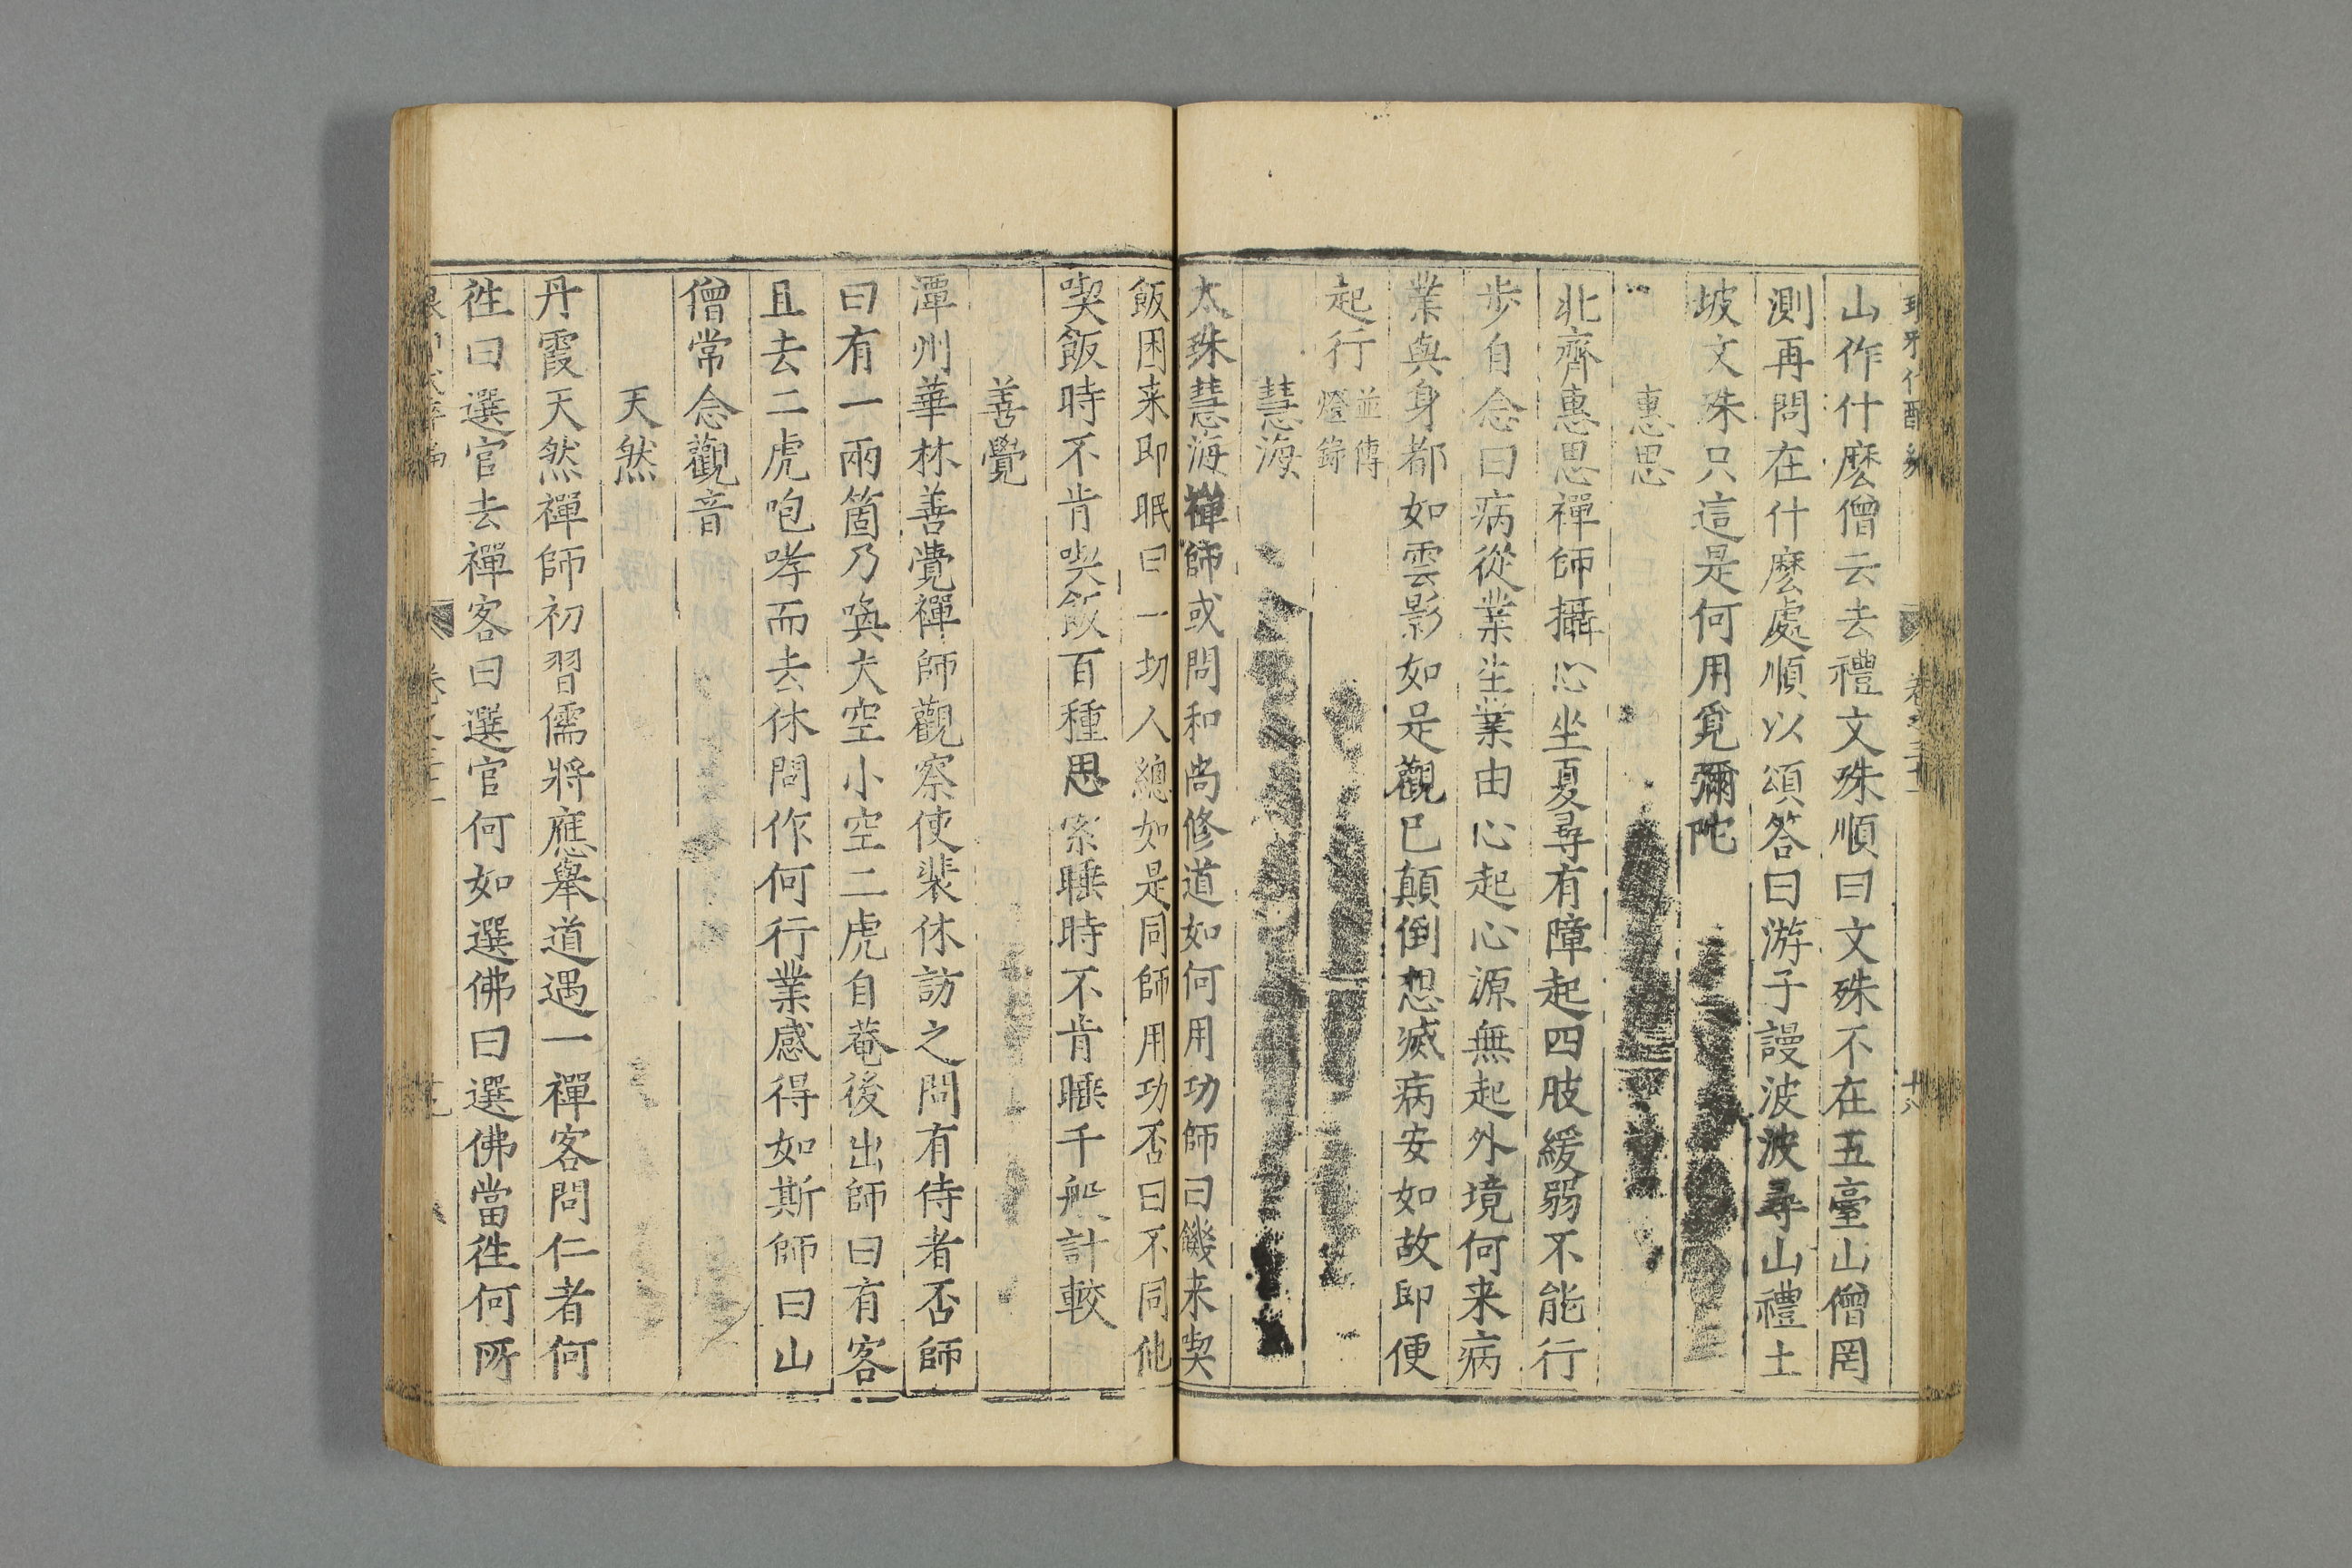 山作什麽僧云去禮文殊順曰文殊不在五臺山僧罔
測再問在什麽處順以頌答曰游子謾波波尋山禮土
坡文殊只這是何用覓彌陀
惠思
北齊惠思禪師攝心坐夏尋有障起四肢緩弱不能行
步自念曰病從業生業由心起心源無起外境何来病
業與身都如雲影如是觀已顛倒想滅病安如故即便
起行並傳燈錄
慧海
太珠慧海禪師或問和尚修道如何用功師曰饑来喫
飯困来即眠曰一切人總如是同師用功否曰不同他
喫飯時不肯喫飯百種思索睡時不肯睡千般計較
善覺
潭州華林善覺禪師觀察使裴休訪之問有侍者否師
曰有一兩箇乃喚大空小空二虎自菴後出師曰有客
且去二虎咆哮而去休問作何行業感得如斯師曰山
僧常念觀音
天然
丹霞天然禪師初習儒將應舉道遇一禪客問仁者何
徃曰選官去禪客曰選官何如選佛曰選佛當徃何所